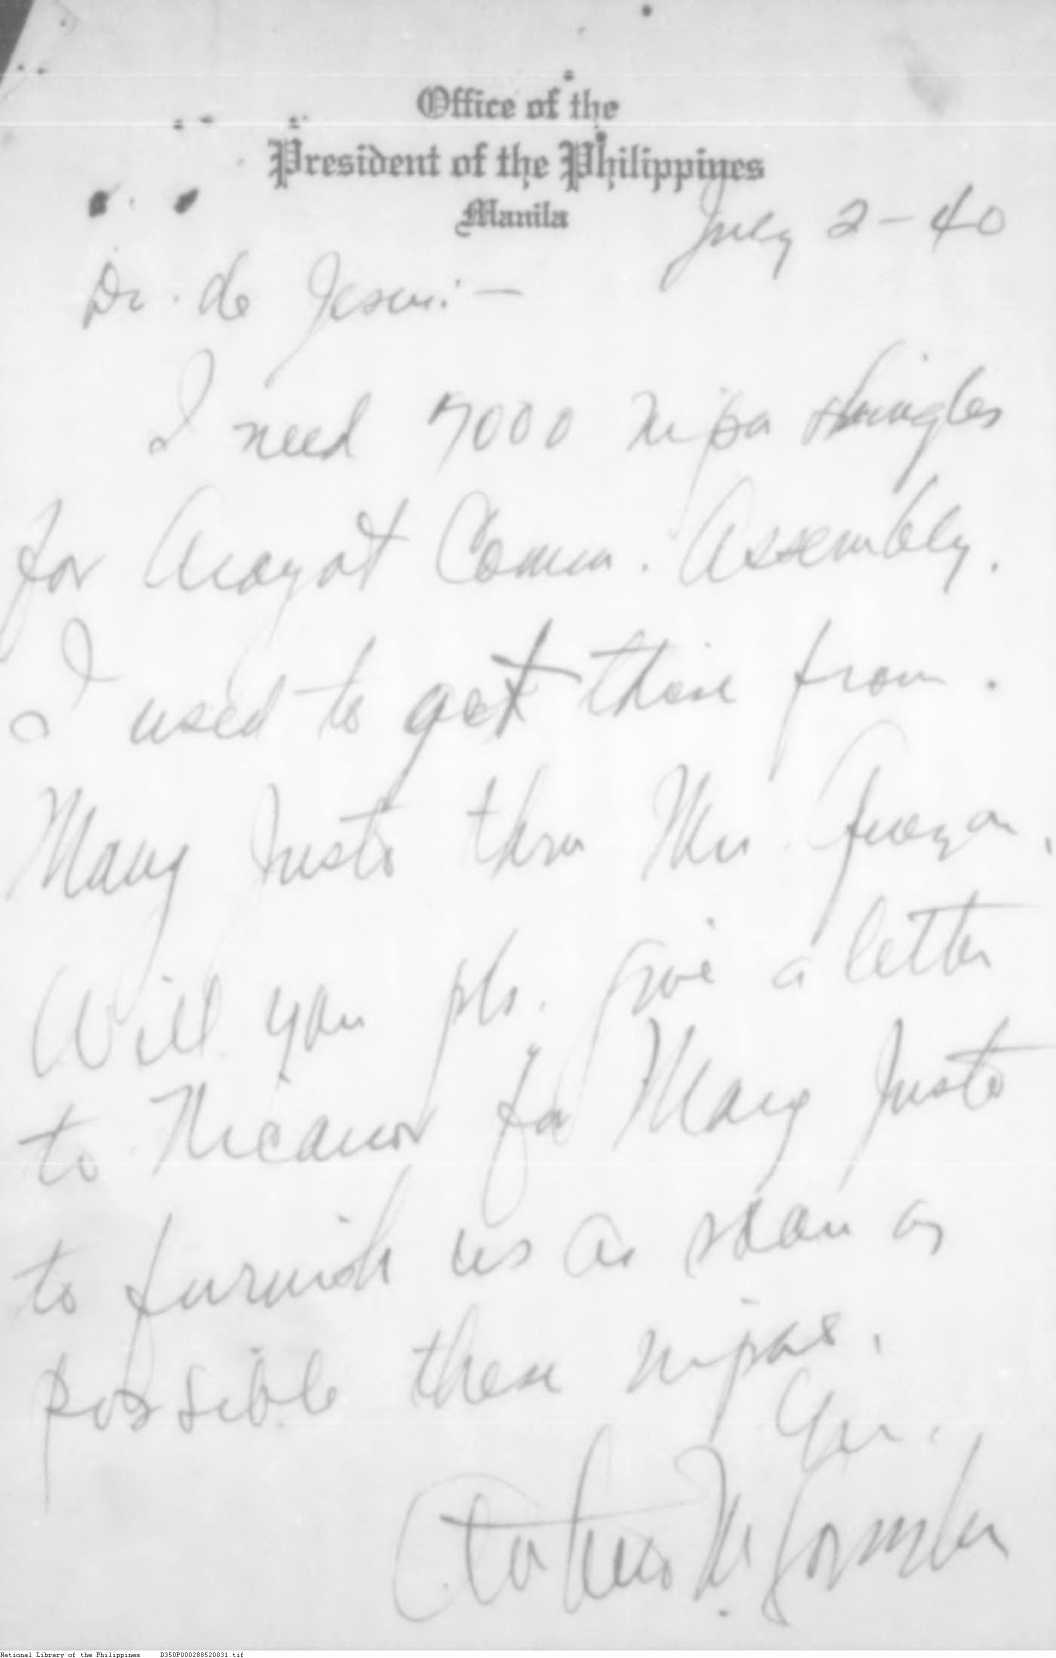 Office of the
President of the Philippines
Manila
July 2-40
Dr. de Jesus:—
I need 7000 nipa shingles
for Arayat Comm. Assembly.
I used to get these from
Mang Justo thru Mr.
Will you pls. give a letter
to Nicanor for Mang Justo
to furnish us as soon as
possible these nipas.
Yrs.
National Library of the Philippines D350P000288520031.tif